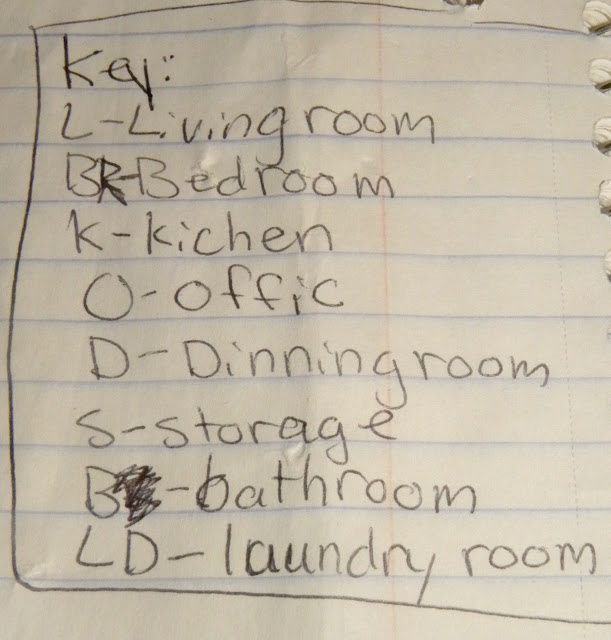 Key:
L-Living room
BR-Bedroom
K-kichen
O-offic
D-Dinning room
S-storage
B-bathroom
LD-laundry room